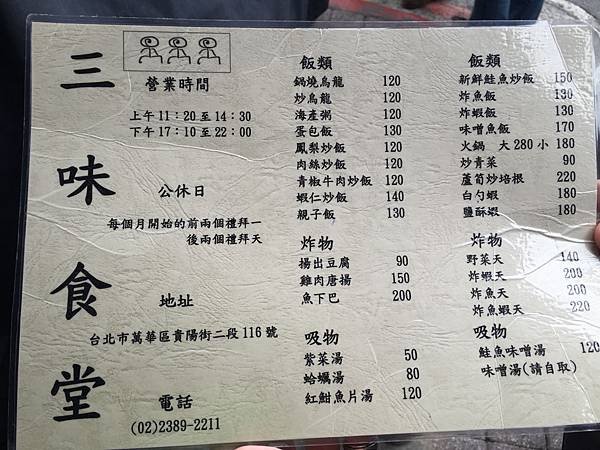 三味食堂
營業時間
上午11:20至14:30
下午17:10至22:00
公休日
每個月開始的前兩個禮拜一
後兩個禮拜天
地址
台北市萬華區貴陽街二段116號
電話
(02)2389-2211
飯類
鍋燒烏龍 120
炒烏龍 120
海產粥 120
蛋包飯 130
鳳梨炒飯 120
肉絲炒飯 120
青椒牛肉炒飯 120
蝦仁炒飯 140
親子飯 130
炸物
揚出豆腐 90
雞肉唐揚 150
魚下巴 200
吸物
紫菜湯 50
蛤蠣湯 80
紅魽魚片湯 120
飯類
新鮮鮭魚炒飯 150
炸魚飯 130
炸蝦飯 130
味噌魚飯 170
火鍋 大280小180
炒青菜 90
蘆筍炒培根 220
白勺蝦 180
鹽酥蝦 180
炸物
野菜天 140
炸蝦天 200
炸魚天 200
炸魚蝦天 220
吸物
鮭魚味噌湯 120
味噌湯(請自取)